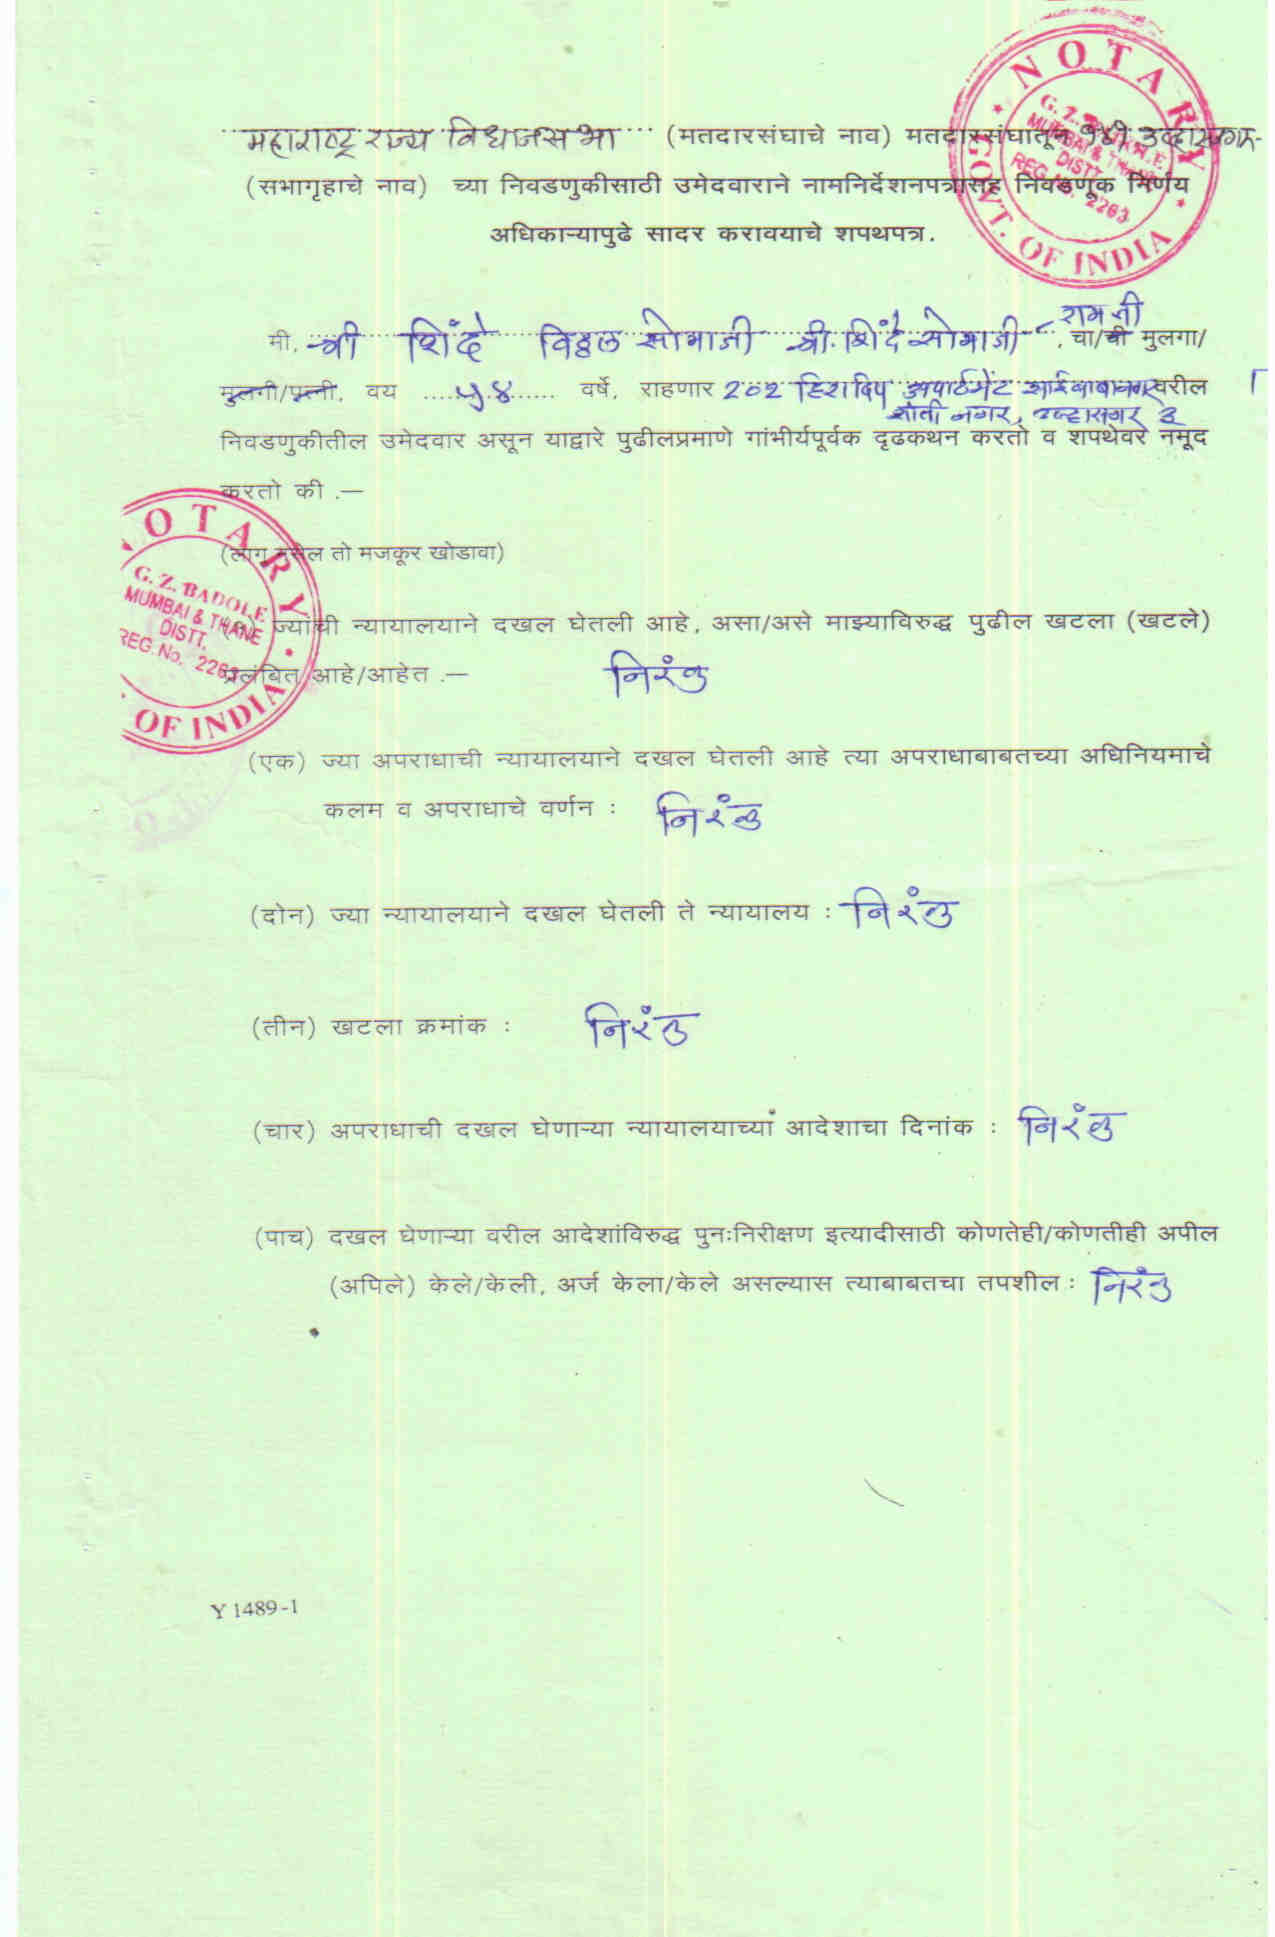 महाराष्ट्र राज्य विधानसभा (मतदारसंघाचे नाव) मतदारसंघातून १४१ उल्हासनगर
(सभागृहाचे नाव) च्या निवडणुकीसाठी उमेदवाराने नामनिर्देशनपत्रासह निवडणूक निर्णय
अधिकाऱ्यापुढे सादर करावयाचे शपथपत्र.
NOTARY
GOVT. OF INDIA
MUMBAI & THANE
DISTT.
REG. No. 2263
रामजी
मी, श्री शिंदे विठ्ठल सोमाजी श्री. शिंदे सोमाजी, चा/ची मुलगा/
मुलगी/पत्नी, वय ५४ वर्षे, राहणार २०२ हिरादिप अपार्टमेंट वरील
शांती नगर, उल्हासनगर ३
निवडणुकीतील उमेदवार असून याद्वारे पुढीलप्रमाणे गांभीर्यपूर्वक दृढकथन करतो व शपथेवर नमूद
करतो की .—
(लागू नसेल तो मजकूर खोडावा)
NOTARY
G. Z. BADOLE
MUMBAI & THANE
DISTT.
REG. No. 2263
OF INDIA
ज्यांची न्यायालयाने दखल घेतली आहे, असा/असे माझ्याविरुद्ध पुढील खटला (खटले)
प्रलंबित आहे/आहेत .— निरंक
(एक) ज्या अपराधाची न्यायालयाने दखल घेतली आहे त्या अपराधाबाबतच्या अधिनियमाचे
कलम व अपराधाचे वर्णन : निरंक
(दोन) ज्या न्यायालयाने दखल घेतली ते न्यायालय : निरंक
(तीन) खटला क्रमांक : निरंक
(चार) अपराधाची दखल घेणाऱ्या न्यायालयाच्यां आदेशाचा दिनांक : निरंक
(पाच) दखल घेणाऱ्या वरील आदेशांविरुद्ध पुनःनिरीक्षण इत्यादीसाठी कोणतेही/कोणतीही अपील
(अपिले) केले/केली, अर्ज केला/केले असल्यास त्याबाबतचा तपशील : निरंक
Y 1489-1